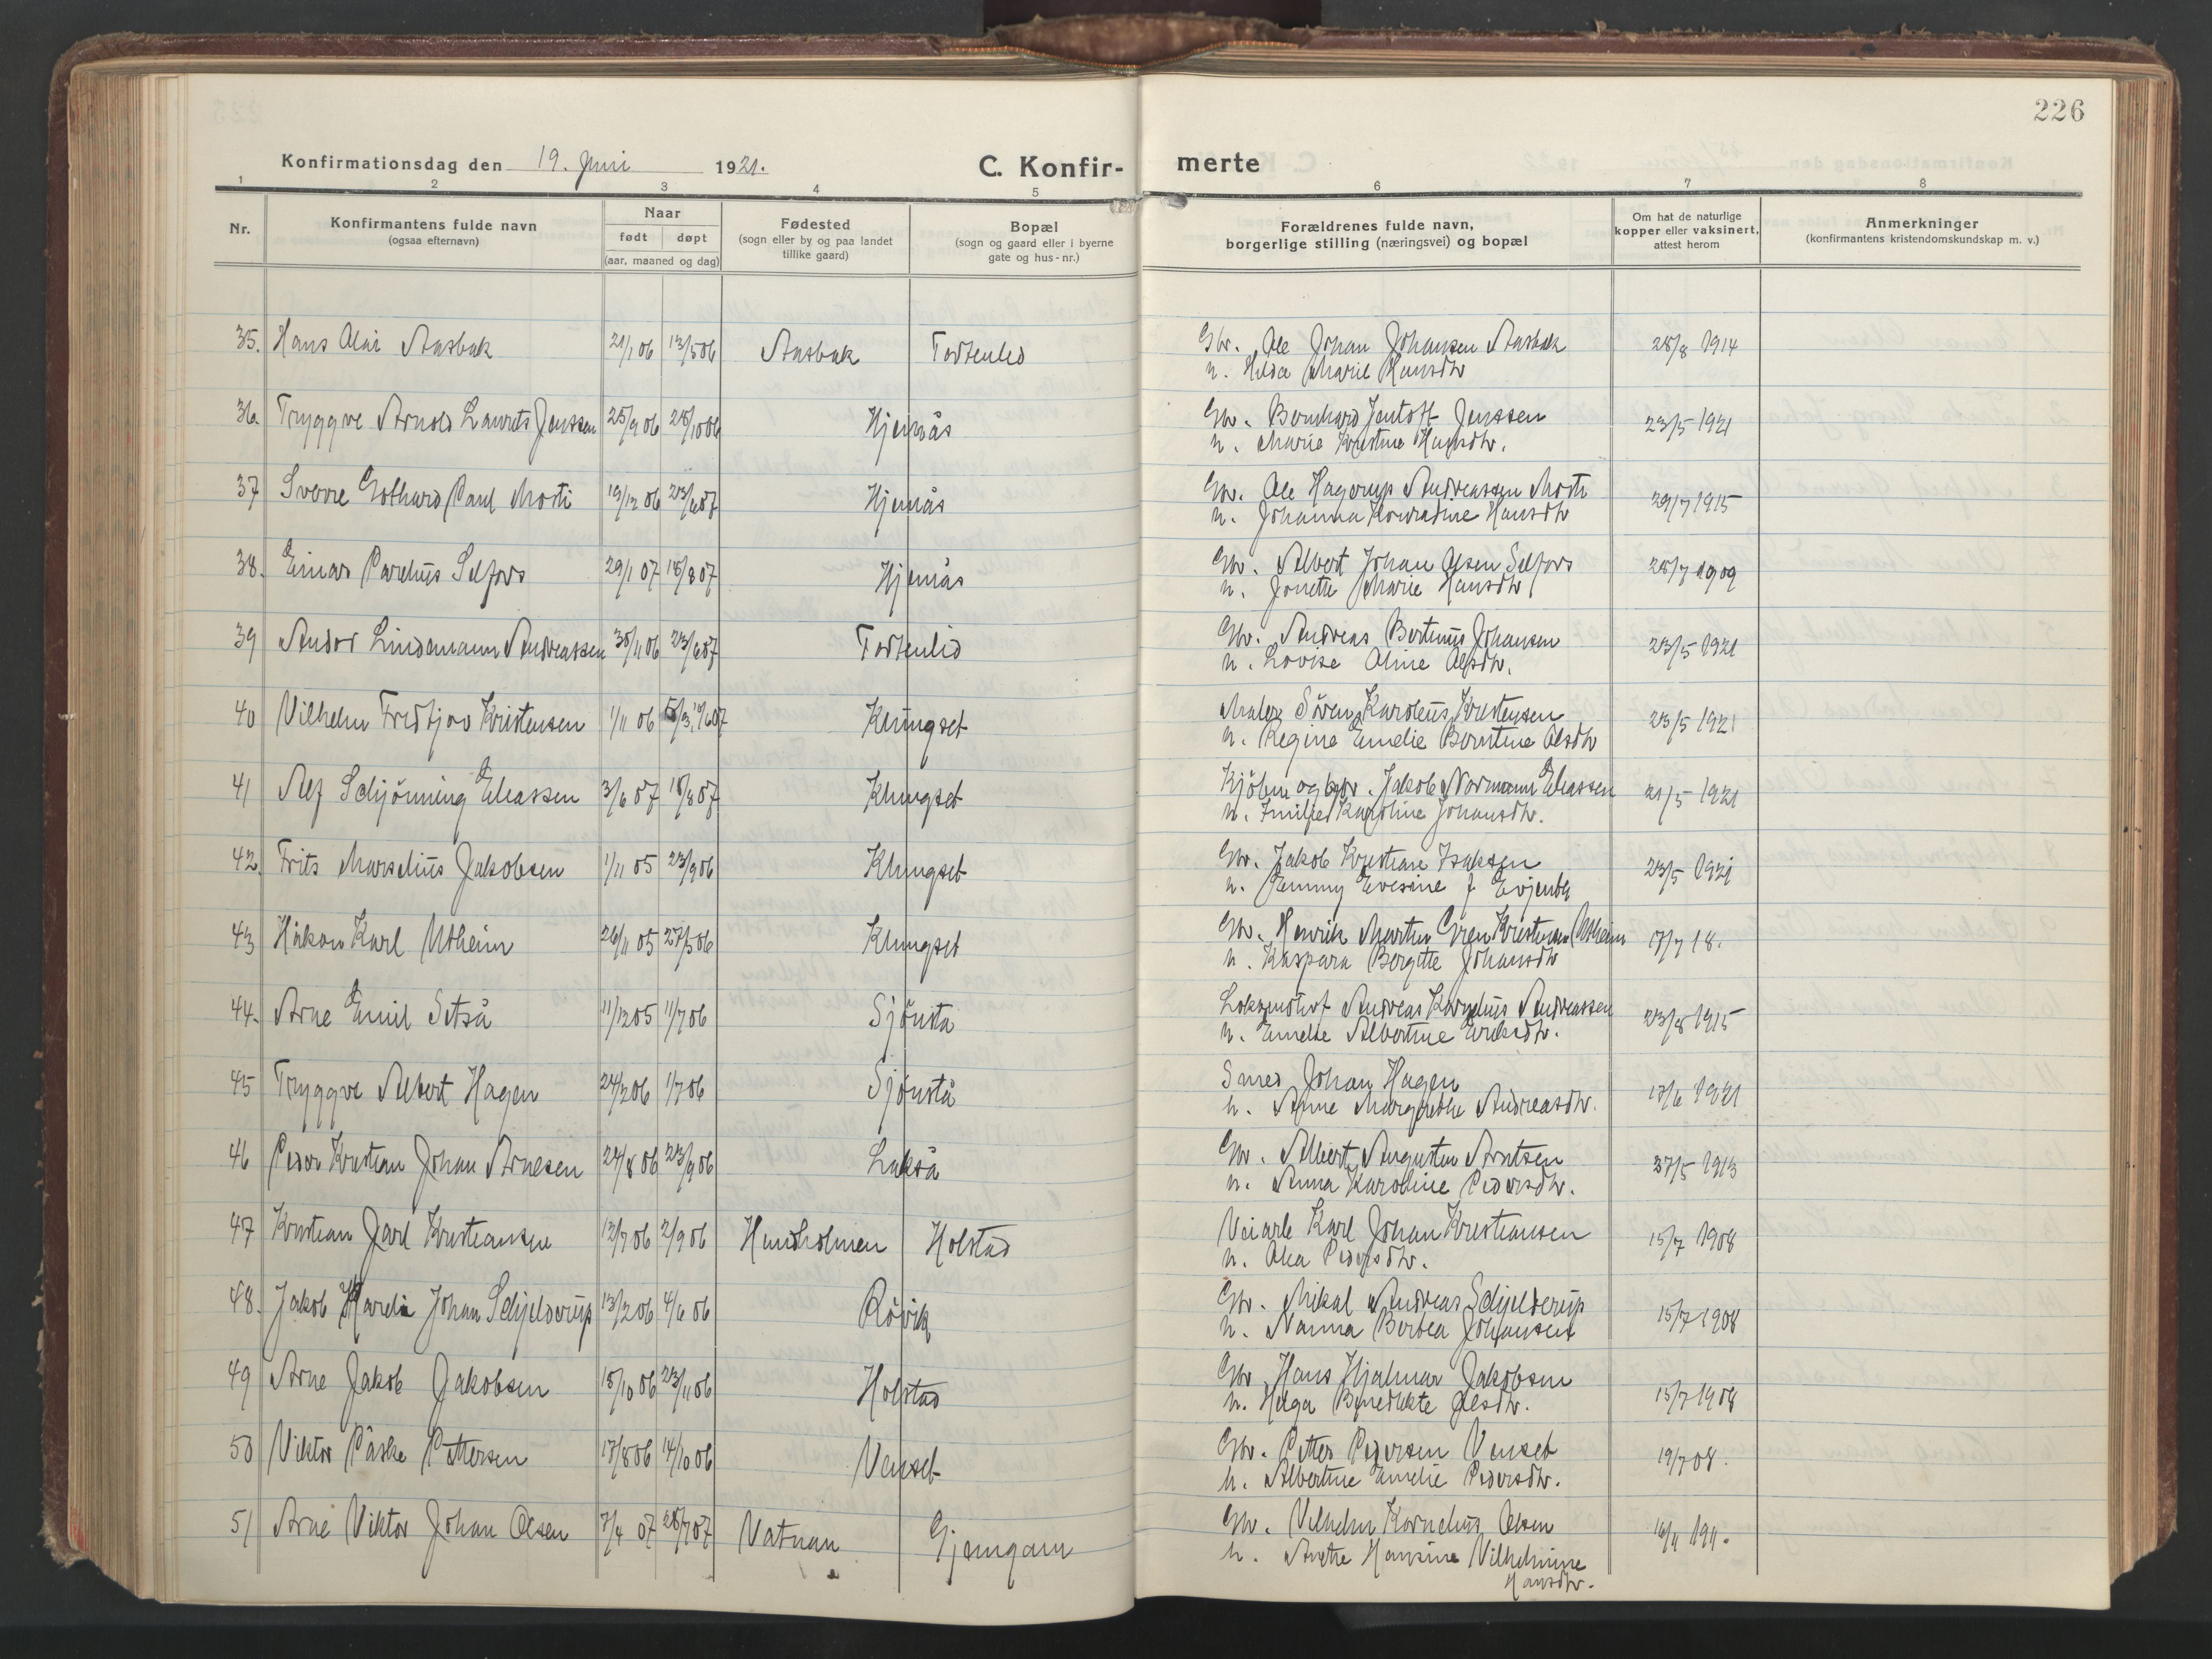 226
Konfirmationsdag den 19. Juni 1921. C. Konfir- merte
1 2 3 4 5 6 7 8
Nr. Konfirmantens fulde navn (ogsaa efternavn) Naar født døpt (aar, maaned og dag) Fødested (sogn eller by og paa landet tillike gaard) Bopæl (sogn og gaard eller i byerne gate og hus-nr.) Forældrenes fulde navn, borgerlige stilling (næringsvei) og bopæl Om hat de naturlige kopper eller vaksinert, attest herom Anmerkninger (konfirmantens kristendomskundskap m. v.)
35. Hans Aasbak 21/1 06 13/5 06 Aasbak Tortenlid Gbr. Ole Johan Johansen Aasbak 28/8 1914
h. Hilda Marie Hansdtr
36. Tryggve Arnold Laurits Jenssen 25/9 06 28/10 06 Hjemås Gbr. Bernhard Jentoft Jenssen 23/5 1921
h. Marie Kristine Hansdtr.
37 Sverre Gothard Paul Mosti 19/12 06 23/6 07 Hjemås Gbr. Ole Hagerup Andreassen Mosti 29/7 1915
h. Johanna Konradine Hansdtr
38. Einar Parelius Selfors 29/1 07 18/8 07 Hjemås Gbr. Albert Johan Olsen Selfors 28/7 1909
h. Jonette Marie Hansdtr
39 Andor Lindemann Andreassen 30/11 06 23/6 07 Tortenlid Gbr. Andreas Bertinus Johansen 23/5 1921
h. Lovise Oline Olsdtr.
40 Vilhelm Fredtjov Kristensen 1/11 06 Klungset Maler Sören Karolius Kristensen 23/5 1921
h. Regine Emelie Berntine Olsdtr
41 Alf Schjönning Eliassen 3/6 07 18/8 07 Klungset Kjöbm og gbr. Jakob Normann Eliassen 21/5 1921
h. Karoline Johansdtr.
42. Frits Marselius Jakobsen 1/11 05 23/9 06 Klungset Gbr. Jakob Kristian Isaksen 23/5 1921
h. Jenny Evesine f. Evjenth
43 Håkon Karl Utheim 26/11 05 27/5 06 Klungset Gbr. Henrik Martin Kristensen Utheim 17/7 18.
h. Kaspara Bergitte Johansdtr
44. Arne Emil Setså 11/12 05 11/7 06 Sjönstå Lokomotivf Andreas Kornelius Andreassen 23/8 1915
h. Emelie Albertine Eriksdtr.
45 Tryggve Albert Hagen 24/2 06 1/7 06 Sjönstå Smed Johan Hagen 17/6 1921
h. Anne Margrethe Andreasdtr.
46 Peder Kristian Johan Arntsen 24/8 06 23/9 06 Lakså Gbr. Albert Augustin Arntsen 27/5 1913
h. Anna Karoline Pedersdtr.
47 Kristian Jarl Kristiansen 12/7 06 2/9 06 Hundholmen Holstad Veiarb Karl Johan Kristiansen 15/7 1908
h. Olea Pedersdtr.
48. Jakob Johan Schjelderup 13/2 06 4/6 06 Rövik Gbr. Mikal Andreas Schjelderup 15/7 1908
h. Nanna Berbea Johansen
49 Arne Jakob Jakobsen 15/10 06 23/11 06 Holstad Gbr Hans Hjalmar Jakobsen 15/7 1908
h. Helga Benedikte Olsdtr.
50 Viktor Påske Pettersen 17/8 06 14/10 06 Venset Gbr. Petter Pedersen Venset 19/7 08.
h. Albertine Emelie Pedersdtr.
51 Arne Viktor Johan Olsen 7/4 07 28/7 07 Vatnan Gjemgam Gbr. Vilhelm Kornelius Olsen 16/11 1911.
h. Anethe Hansine Vilhelmine
Hansdtr.